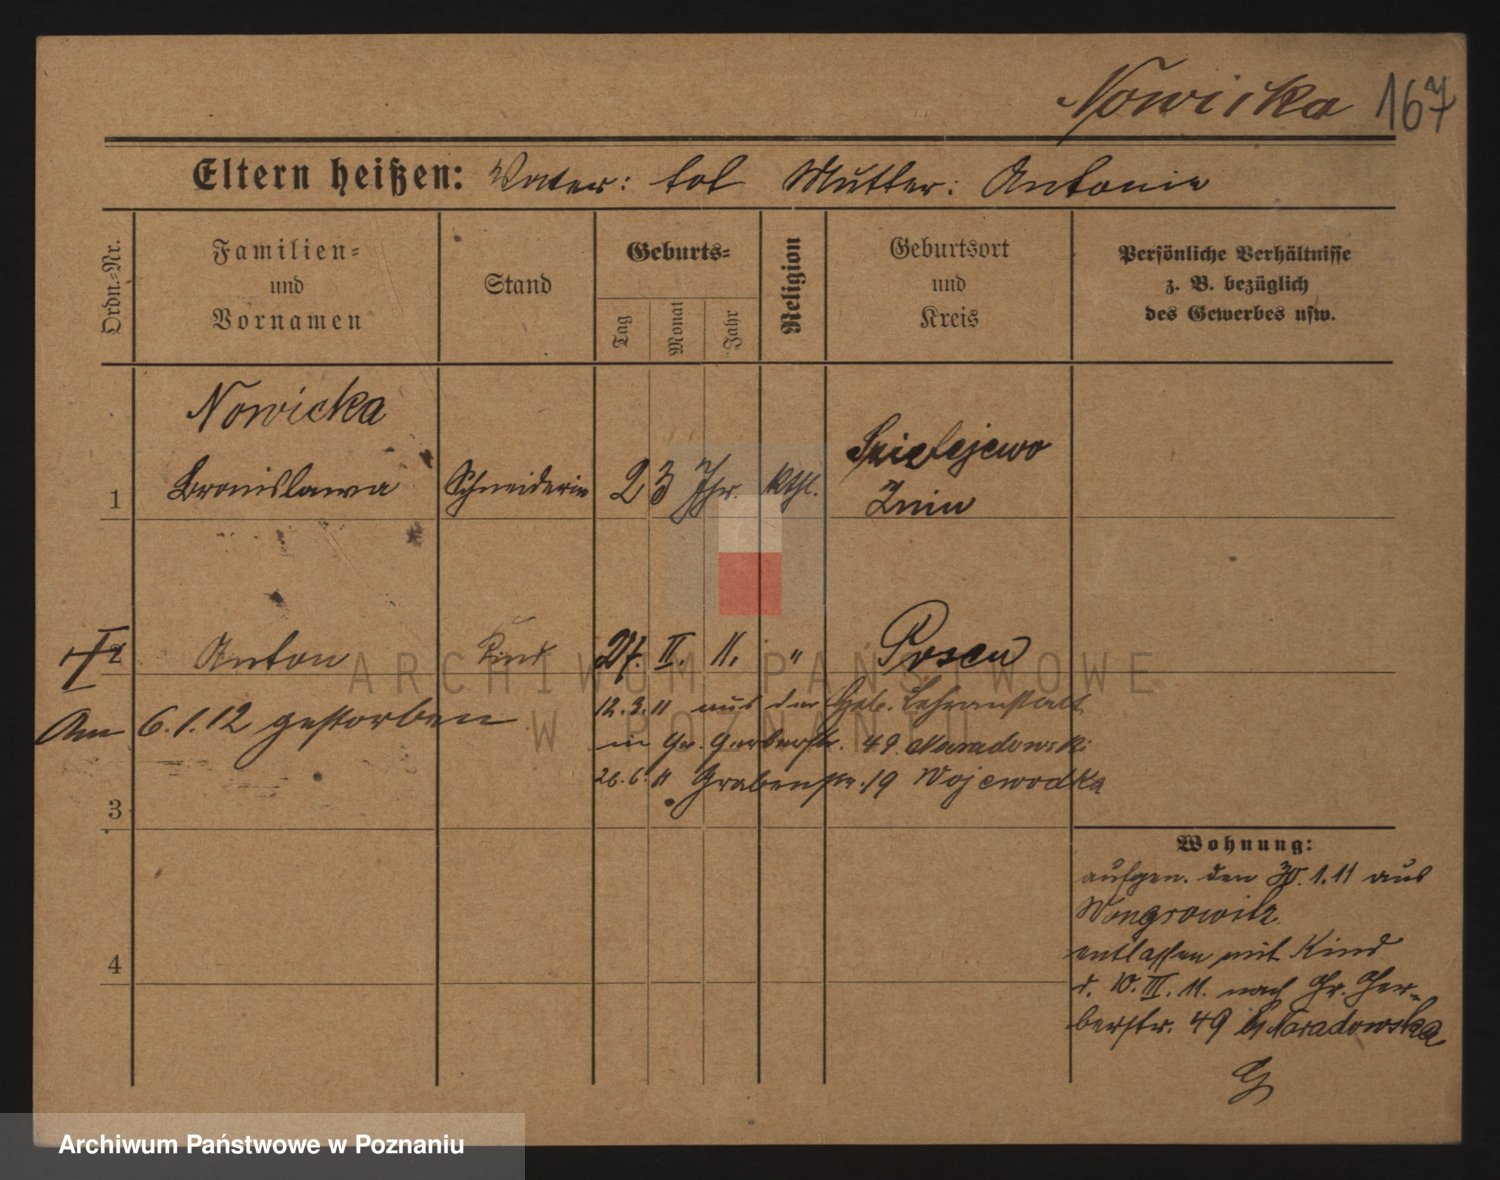 Nowicka 167
Eltern heißen: Vater: tot Mutter: Antonie
Ordn.-Nr.
Familien-
und
Vornamen
Stand
Geburts-
Tag
Monat
Jahr
Religion
Geburtsort
und
Kreis
Persönliche Verhältnisse
z. B. bezüglich
des Gewerbes usw.
Nowicka
1 Bronislawa Schneiderin 23 Jhr. kthl.
Znin
Anton Kind 27. II. 11. " Posen
Am 6.1.12 gestorben
12.3.11 aus der Heb. Lehranstalt
in Gr. Gerberstr. 49. Naradowski
26.6.11 Grabenstr. 19 Wojewodka
3
4
Wohnung:
aufgen. den 30.1.11 aus
Wongrowitz
entlassen mit Kind
d. 10. III. 11. nach Gr. Ger-
berstr. 49 b/ Naradowska
ARCHIWUM PAŃSTWOWE
W POZNANIU
Archiwum Państwowe w Poznaniu